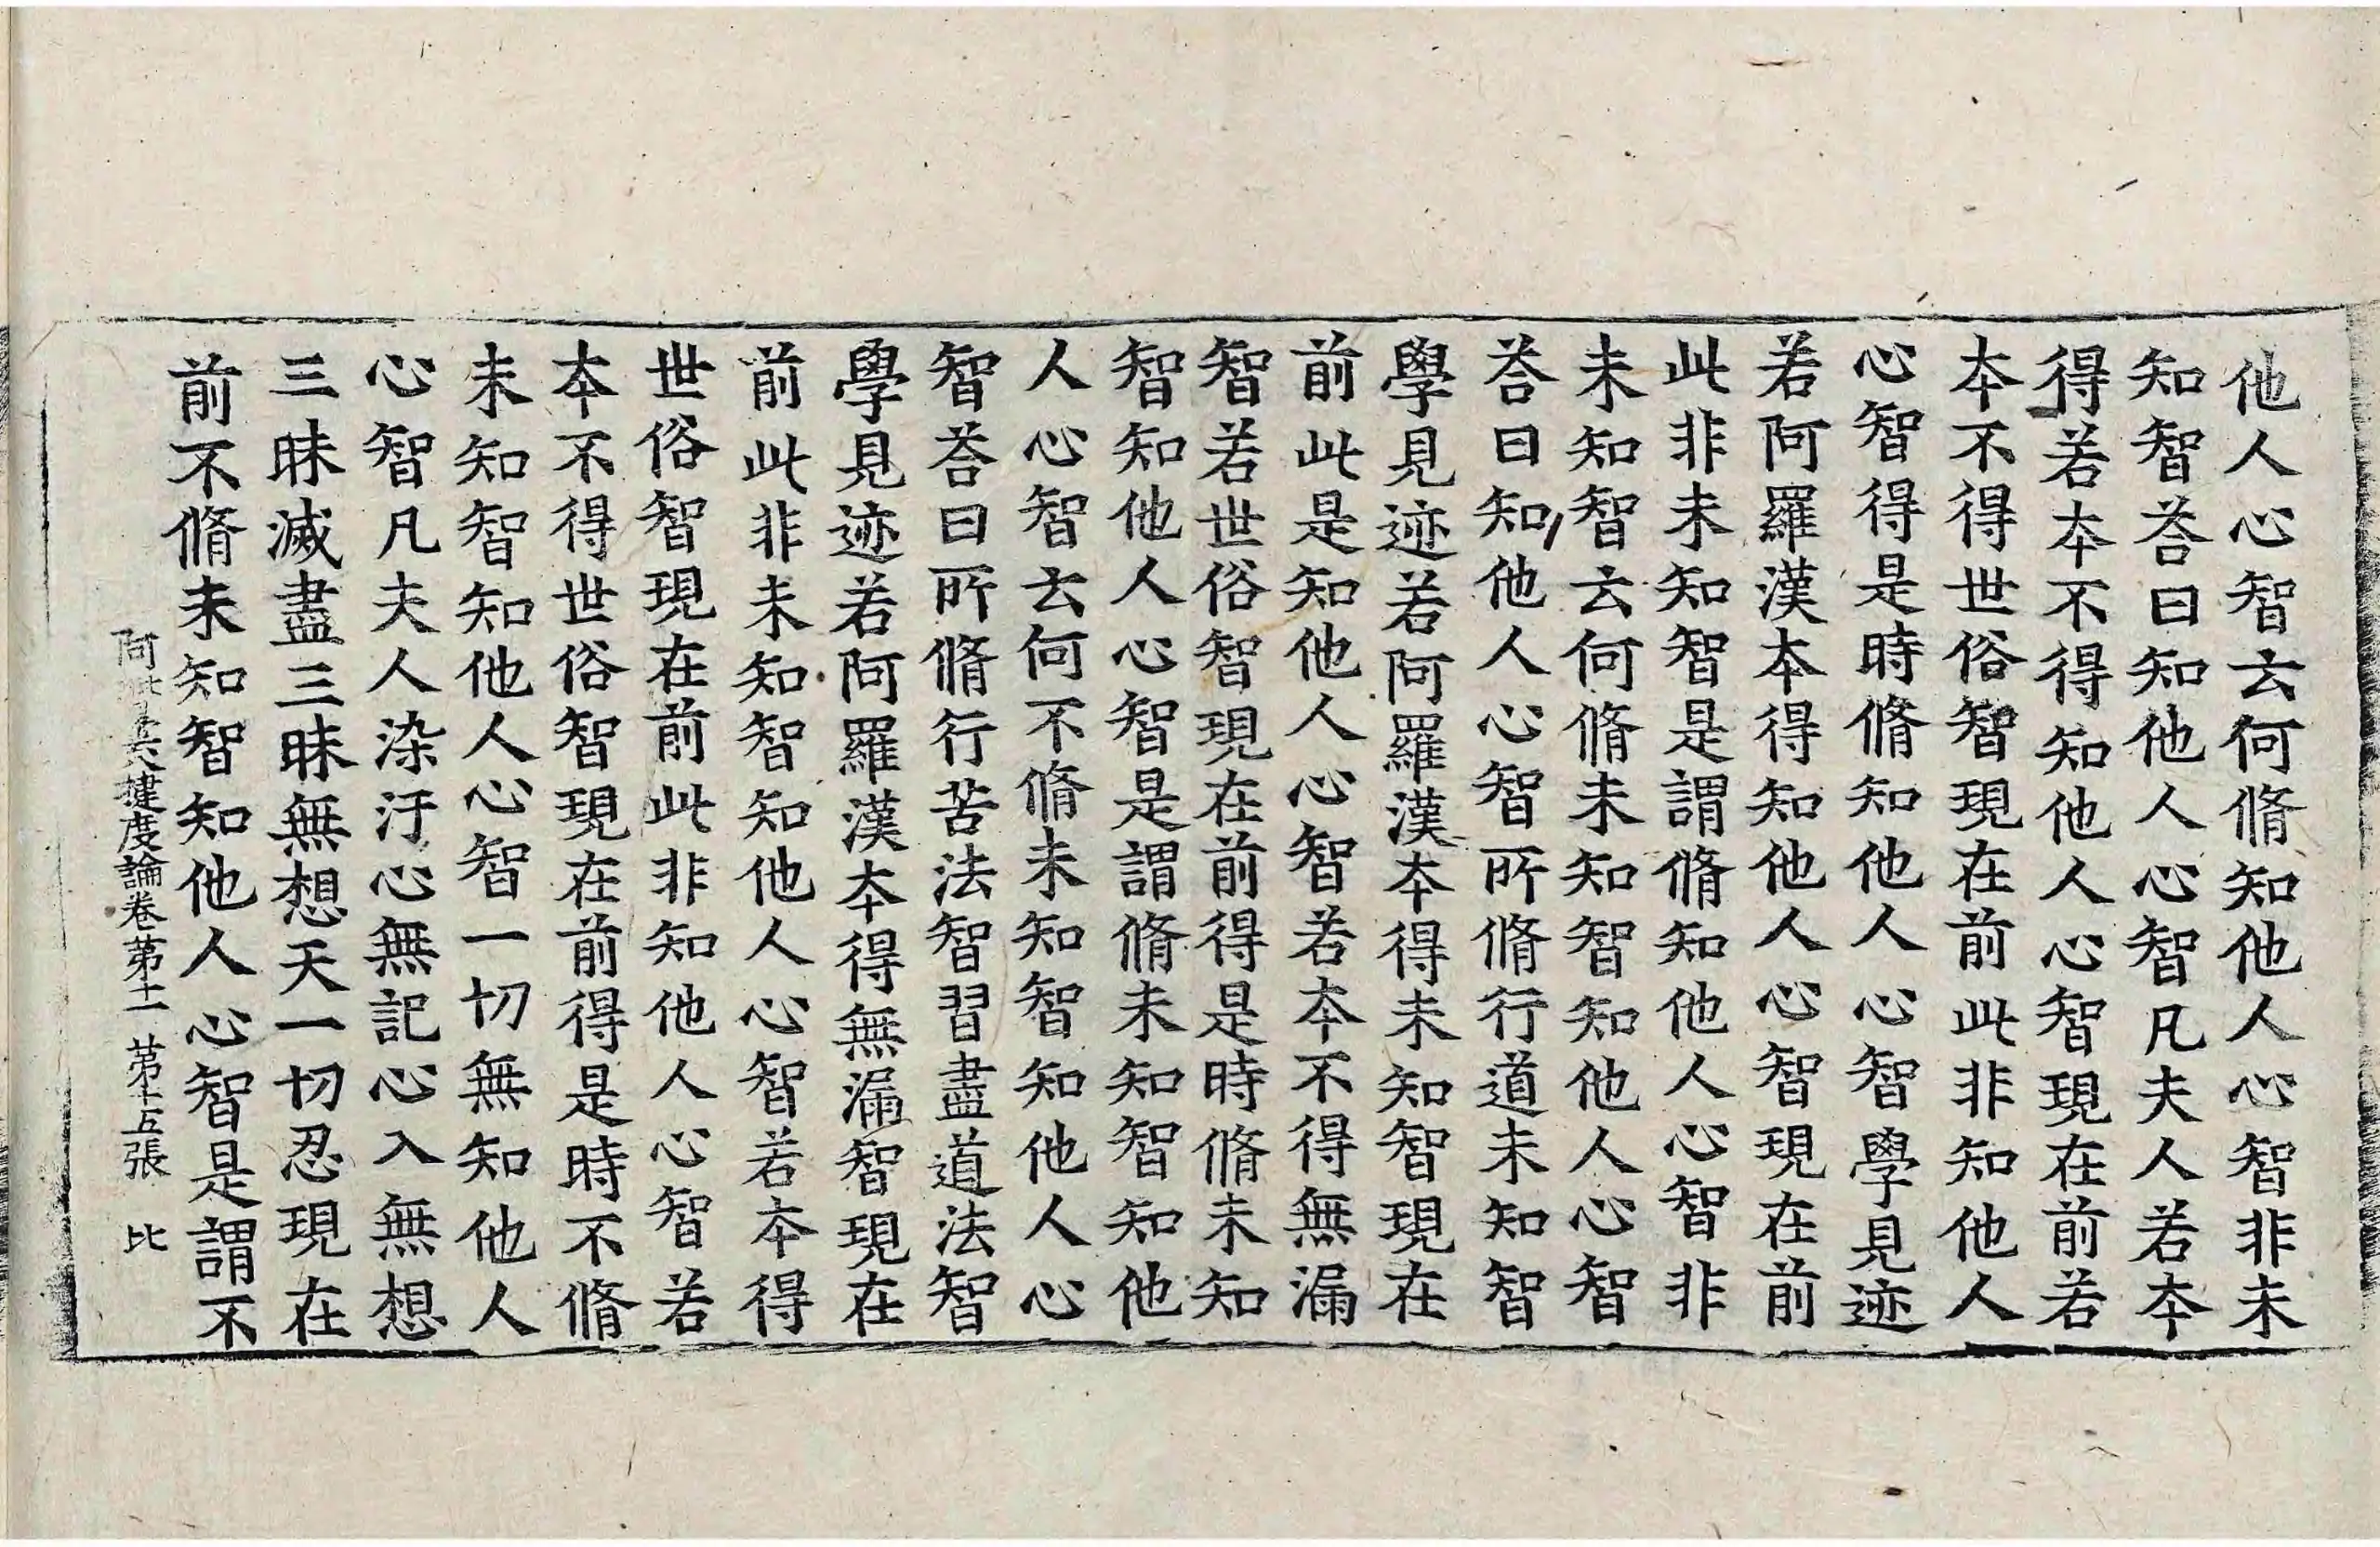 他人心智云何脩知他人心智非未
知智荅曰知他人心智凡夫人若本
得若本不得知他人心智現在前若
本不得世俗智現在前此非知他人
心智得是時脩知他人心智學見迹
若阿羅漢本得知他人心智現在前
此非未知智是謂脩知他人心智非
未知智云何脩未知智知他人心智
荅曰知他人心智所脩行道未知智
學見迹若阿羅漢本得未知智現在
前此是知他人心智若本不得無漏
智若世俗智現在前得是時脩未知
智知他人心智是謂脩未知智知他
人心智云何不脩未知智知他人心
智荅曰所脩行苦法智習盡道法智
學見迹若阿羅漢本得無漏智現在
前此非未知智知他人心智若本得
世俗智現在前此非知他人心智若
本不得世俗智現在前得是時不脩
未知智知他人心智一切無知他人
心智凡夫人染汙心無記心入無想
三昧滅盡三昧無想天一切忍現在
前不脩未知智知他人心智是謂不
阿毗曇八揵度論卷第十一 第十五張 比